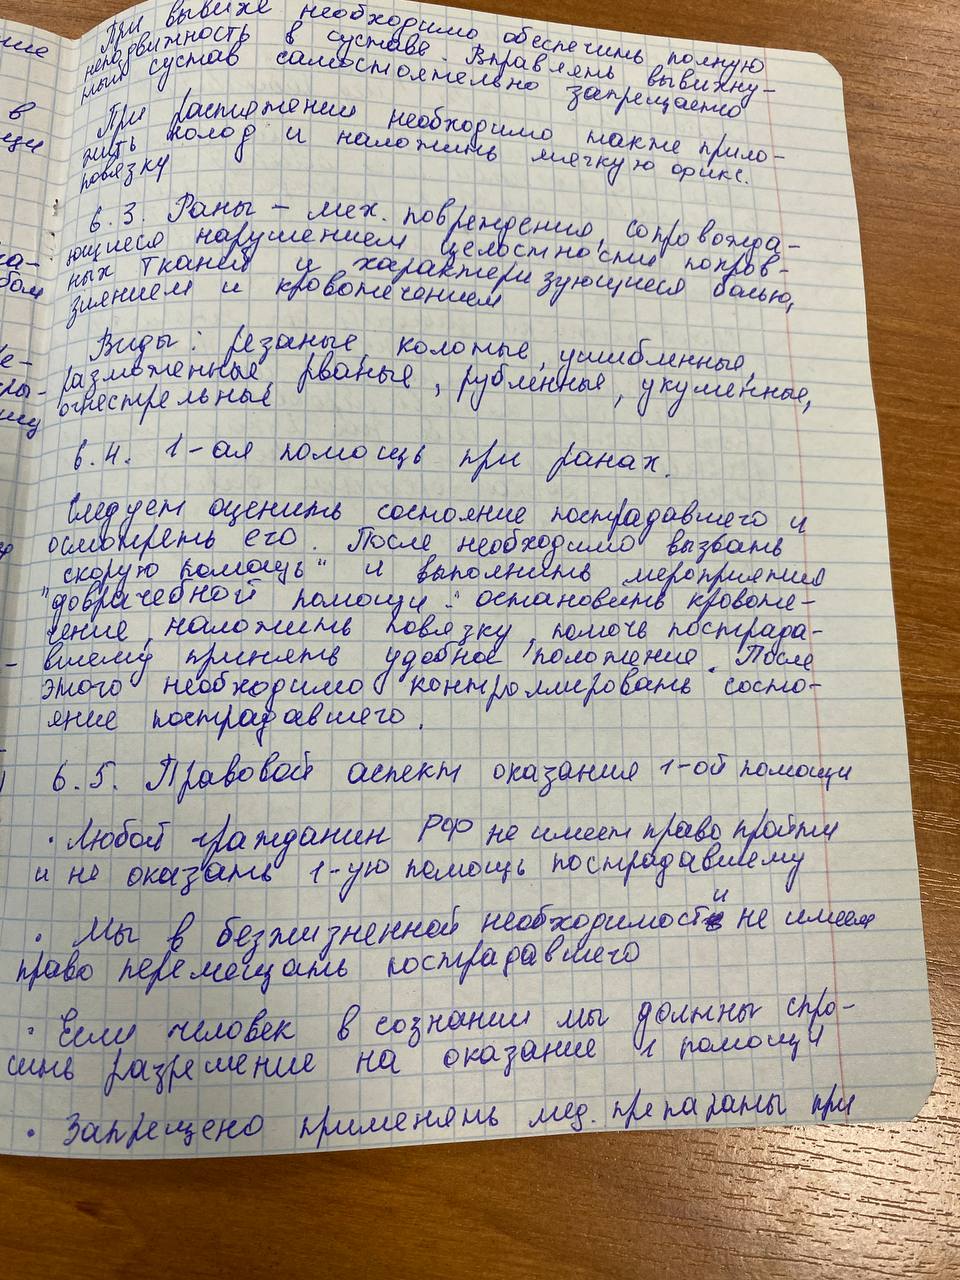 При вывихе необходимо обеспечить полную
неподвижность в суставе. Вправлять вывихну-
тый сустав самостоятельно запрещаемо
При растяжении необходимо также прило-
жить холод и наложить мягкую фикс.
повязку
6.3. Раны – мех. повреждения, сопровожда-
ющиеся нарушением целостности покров-
ных тканей и характеризующиеся болью,
зиянием и кровотечением
Виды: резаные, колотые, ушибленные,
разможенные, рваные, рубленные, укушенные,
огнестрельные
6.4. 1-ая помощь при ранах.
Следует оценить состояние пострадавшего и
осмотреть его. После необходимо вызвать
"скорую помощь" и выполнить мероприятия
доврачебной помощи: остановить кровоте-
чение, наложить повязку, помочь пострада-
вшему принять удобное положение. После
этого необходимо контроллировать состо-
яние пострадавшего.
6.5. Правовой аспект оказания 1-ой помощи
· Любой гражданин РФ не имеет право пройти
и не оказать 1-ую помощь пострадавшему
· Мы в безжизненной необходимости не имеем
право перемещать пострадавшего
· Если человек в сознании мы должны спро-
сить разрешение на оказание 1 помощи
· Запрещено применять мед. препараты при